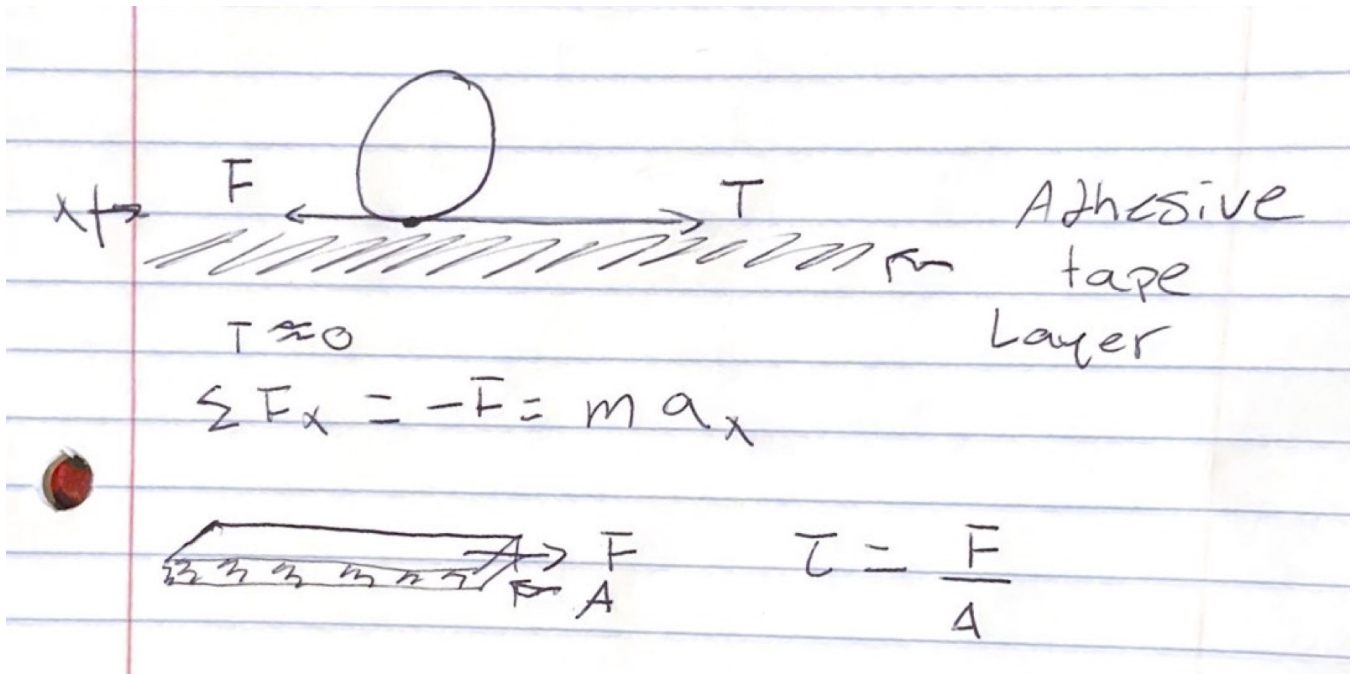 F
T
x+→
Adhesive
tape
Layer
T ≈ 0
ΣFx = -F = max
F
A
τ = F/A